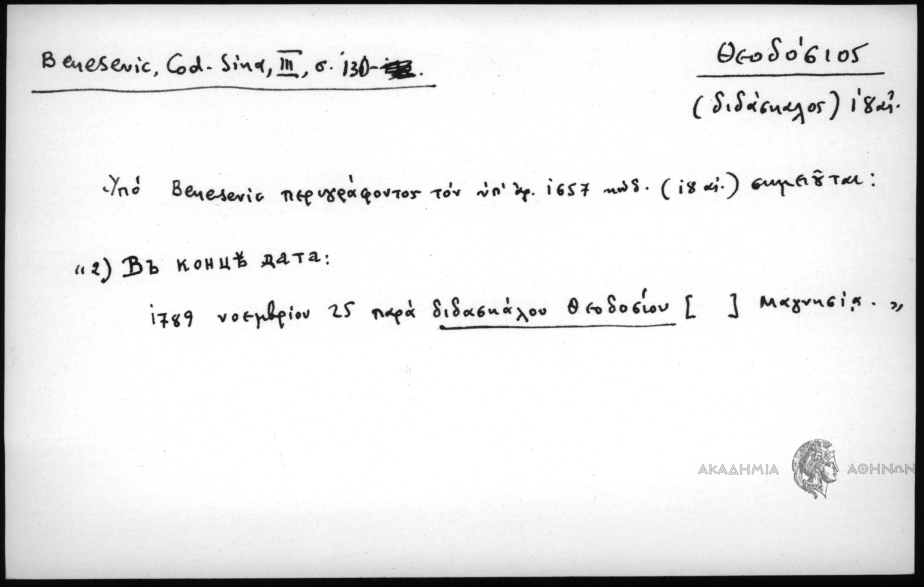 Benesevic, Cod. Sina, III, σ. 130.
Θεοδόσιος
(διδάσκαλος) ιη αἰ.
Ὑπό Benesevic περιγράφοντος τόν ὑπ' ἀρ. 1657 κώδ. (ιη αἰ.) σημειοῦται:
"2) Въ концѣ дата:
1789 νοεμβρίου 25 παρά διδασκάλου Θεοδοσίου [ ] Μαγνησίᾳ. "
ΑΚΑΔΗΜΙΑ ΑΘΗΝΩΝ